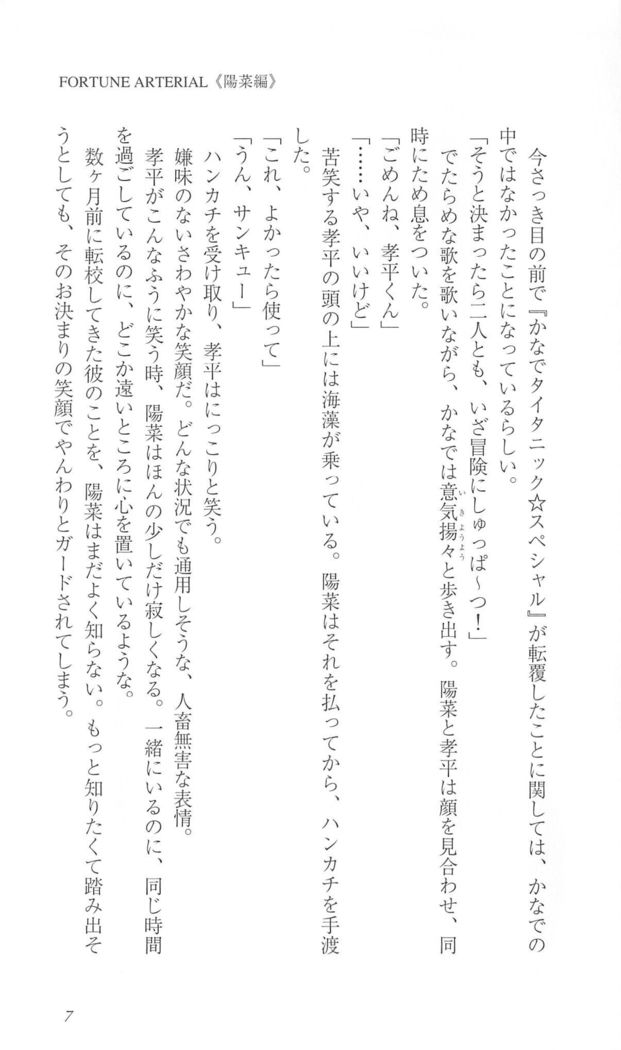 FORTUNE ARTERIAL《陽菜編》
今さっき目の前で『かなでタイタニック☆スペシャル』が転覆したことに関しては、かなでの
中ではなかったことになっているらしい。
「そうと決まったら二人とも、いざ冒険にしゅっぱ～つ！」
でたらめな歌を歌いながら、かなでは意気揚々と歩き出す。陽菜と孝平は顔を見合わせ、同
いきようよう
時にため息をついた。
「ごめんね、孝平くん」
「……いや、いいけど」
苦笑する孝平の頭の上には海藻が乗っている。陽菜はそれを払ってから、ハンカチを手渡
した。
「これ、よかったら使って」
「うん、サンキュー」
ハンカチを受け取り、孝平はにっこりと笑う。
嫌味のないさわやかな笑顔だ。どんな状況でも通用しそうな、人畜無害な表情。
孝平がこんなふうに笑う時、陽菜はほんの少しだけ寂しくなる。一緒にいるのに、同じ時間
を過ごしているのに、どこか遠いところに心を置いているような。
数ヶ月前に転校してきた彼のことを、陽菜はまだよく知らない。もっと知りたくて踏み出そ
うとしても、そのお決まりの笑顔でやんわりとガードされてしまう。
7